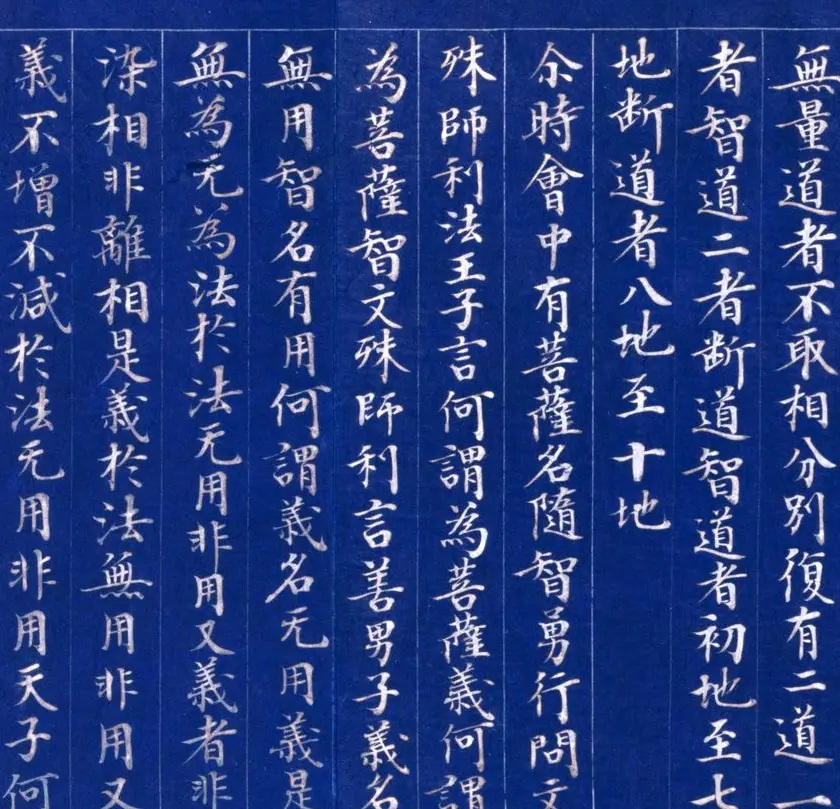 無量道者不取相分別復有二道一
者智道二者断道智道者初地至七
地断道者八地至十地
尒時會中有菩薩名隨智勇行問文
殊師利法王子言何謂為菩薩義何謂
為菩薩智文殊師利言善男子義名
無用智名有用何謂義名无用義是
無為无為法於法无用非用又義者非
染相非離相是義於法無用非用又
義不增不減於法无用非用天子何